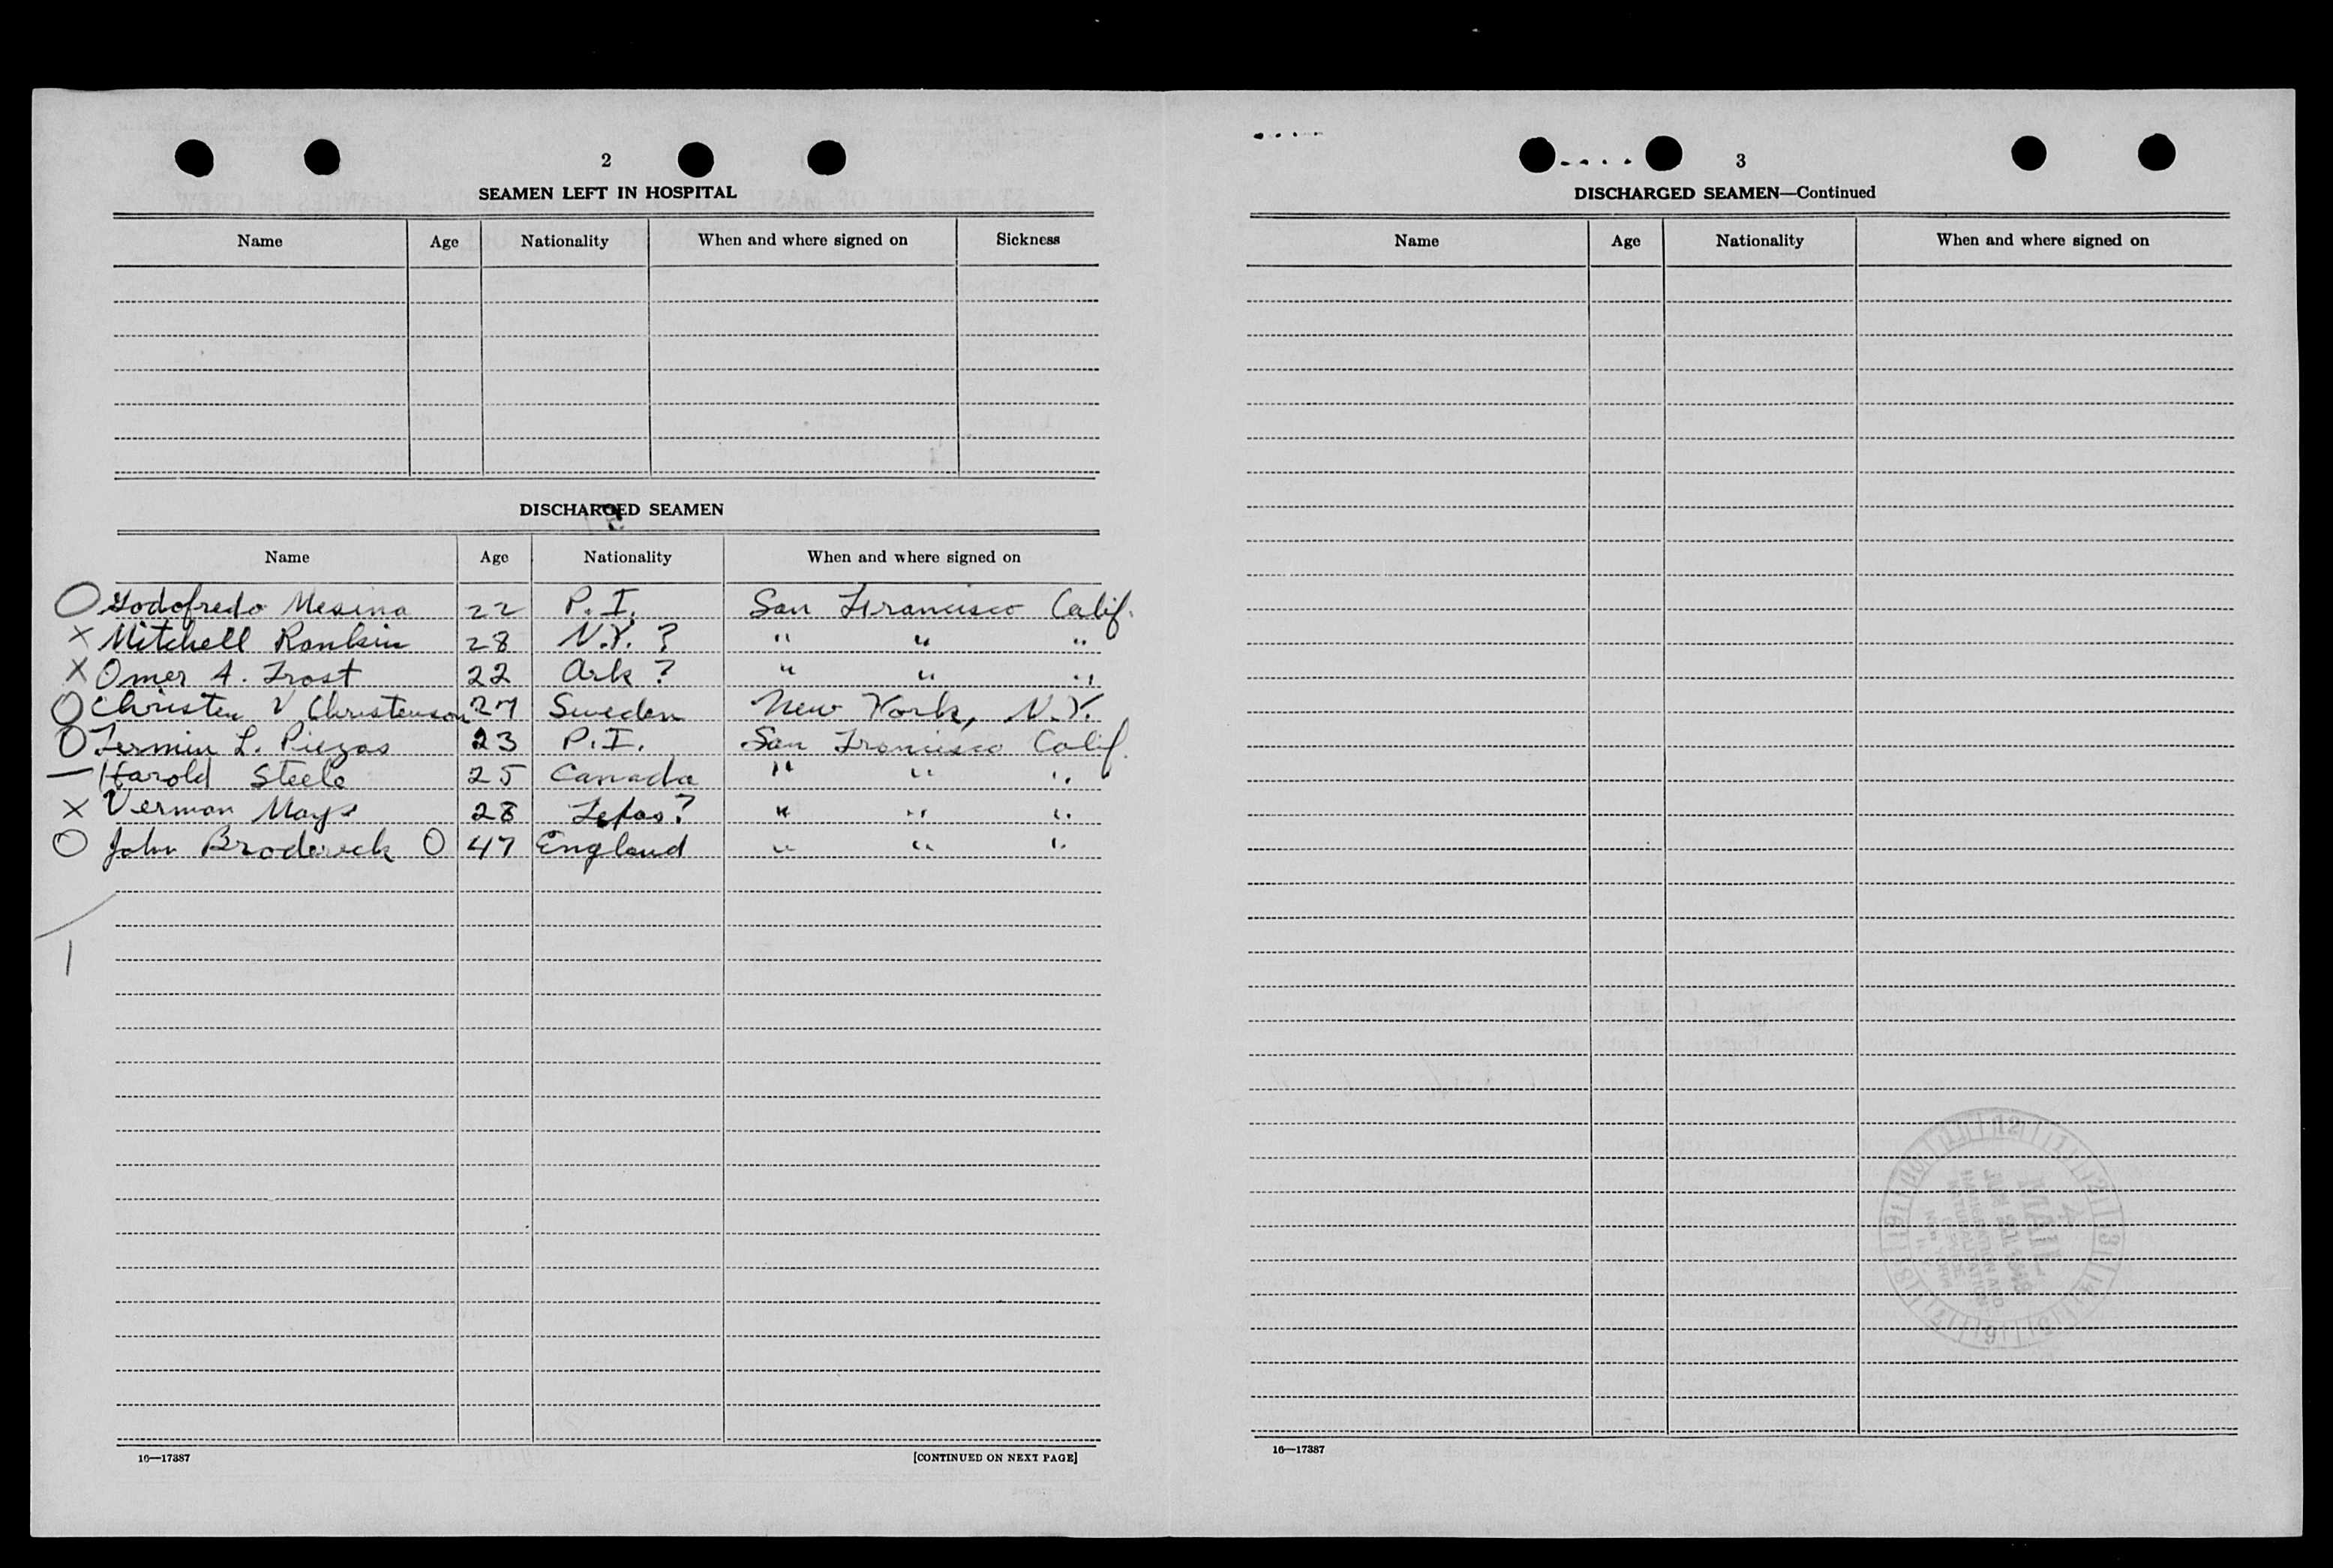 2
SEAMEN LEFT IN HOSPITAL
Name Age Nationality When and where signed on Sickness
DISCHARGED SEAMEN
Name Age Nationality When and where signed on
O Godofredo Mesina 22 P.I. San Francisco Calif.
X Mitchell Rankin 28 N.Y. ? " " "
X Omer A. Frost 22 Ark ? " " "
O Christen V Christenson 27 Sweden New York, N.Y.
O Fermin L. Piezas 23 P.I. San Francisco Calif.
— Harold Steele 25 Canada " " "
X Vermon Mays 28 Texas? " " "
O John Broderick O 47 England " " "
1
16—17387 [CONTINUED ON NEXT PAGE]
3
DISCHARGED SEAMEN—Continued
Name Age Nationality When and where signed on
MAIL
IMMIGRATION AND
NATURALIZATION
NEW YORK
16—17387